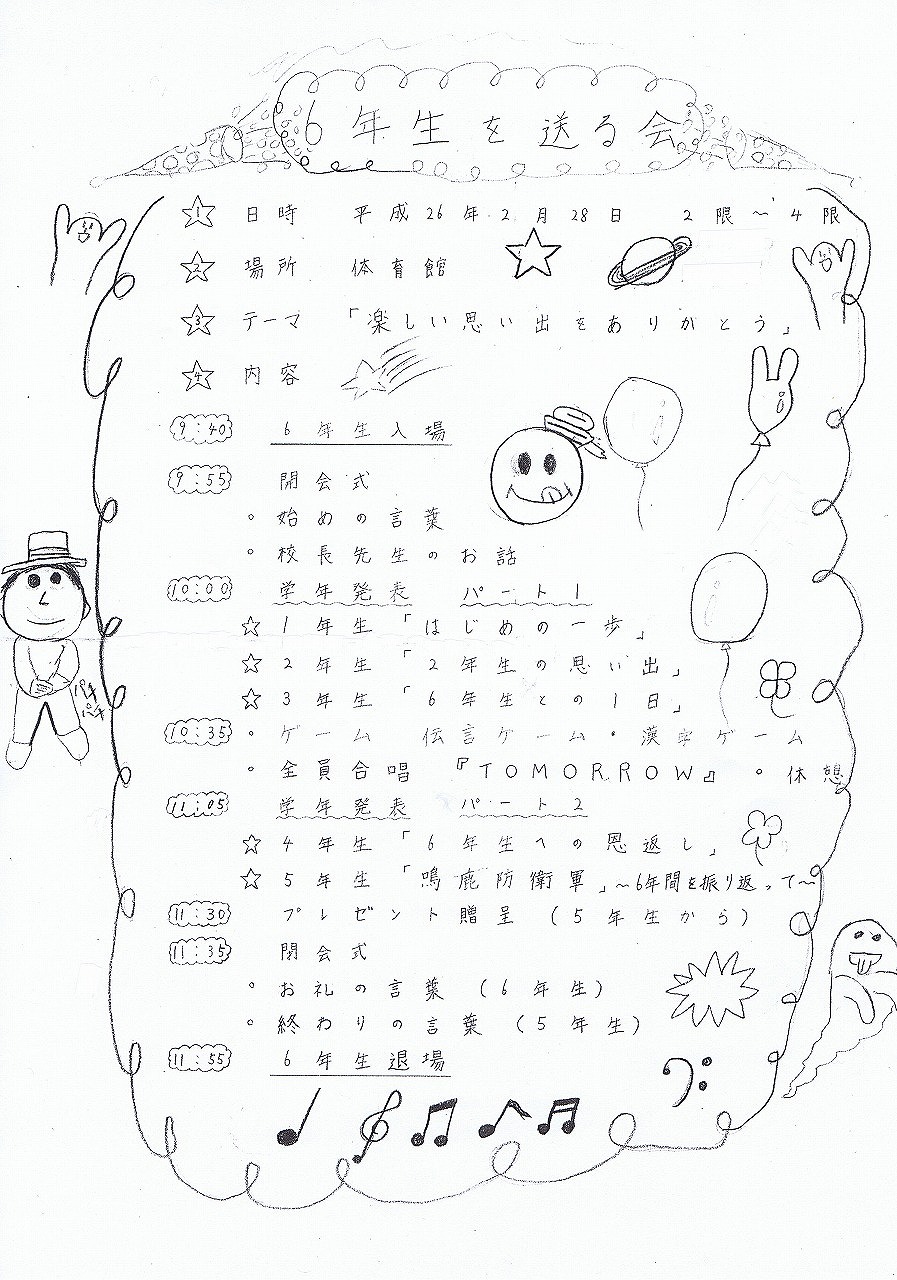 6年生を送る会
1 日時 平成26年2月28日 2限～4限
2 場所 体育館
3 テーマ 「楽しい思い出をありがとう」
4 内容
9:40 6年生入場
9:55 開会式
・始めの言葉
・校長先生のお話
10:00 学年発表 パート1
☆1年生「はじめの一歩」
☆2年生「2年生の思い出」
☆3年生「6年生との1日」
10:35・ゲーム 伝言ゲーム・漢字ゲーム
・全員合唱 『TOMORROW』 ・休憩
11:05 学年発表 パート2
☆4年生「6年生への恩返し」
☆5年生「鳴鹿防衛軍」～6年間を振り返って～
11:30 プレゼント贈呈（5年生から）
11:35 閉会式
・お礼の言葉（6年生）
・終わりの言葉（5年生）
11:55 6年生退場
パチ
パチ